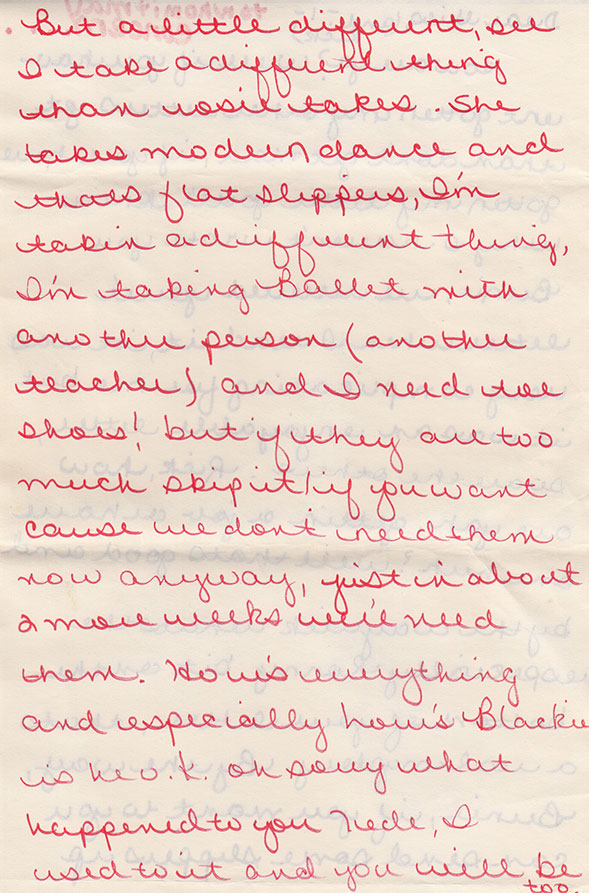 But a little different, see
I take a different thing
than rosie takes. She
takes modern dance and
thats flat slippers, I'm
takin a different thing,
I'm taking Ballet with
another person (another
teacher) and I need toe
shoes! but if they are too
much skip it if you want
cause we don't need them
now anyway, just in about
2 more weeks we'll need
them. How's everything
and especially how's Blackie
is he o.k. oh sorry what
happened to you        , I
used to it and you will be
too.